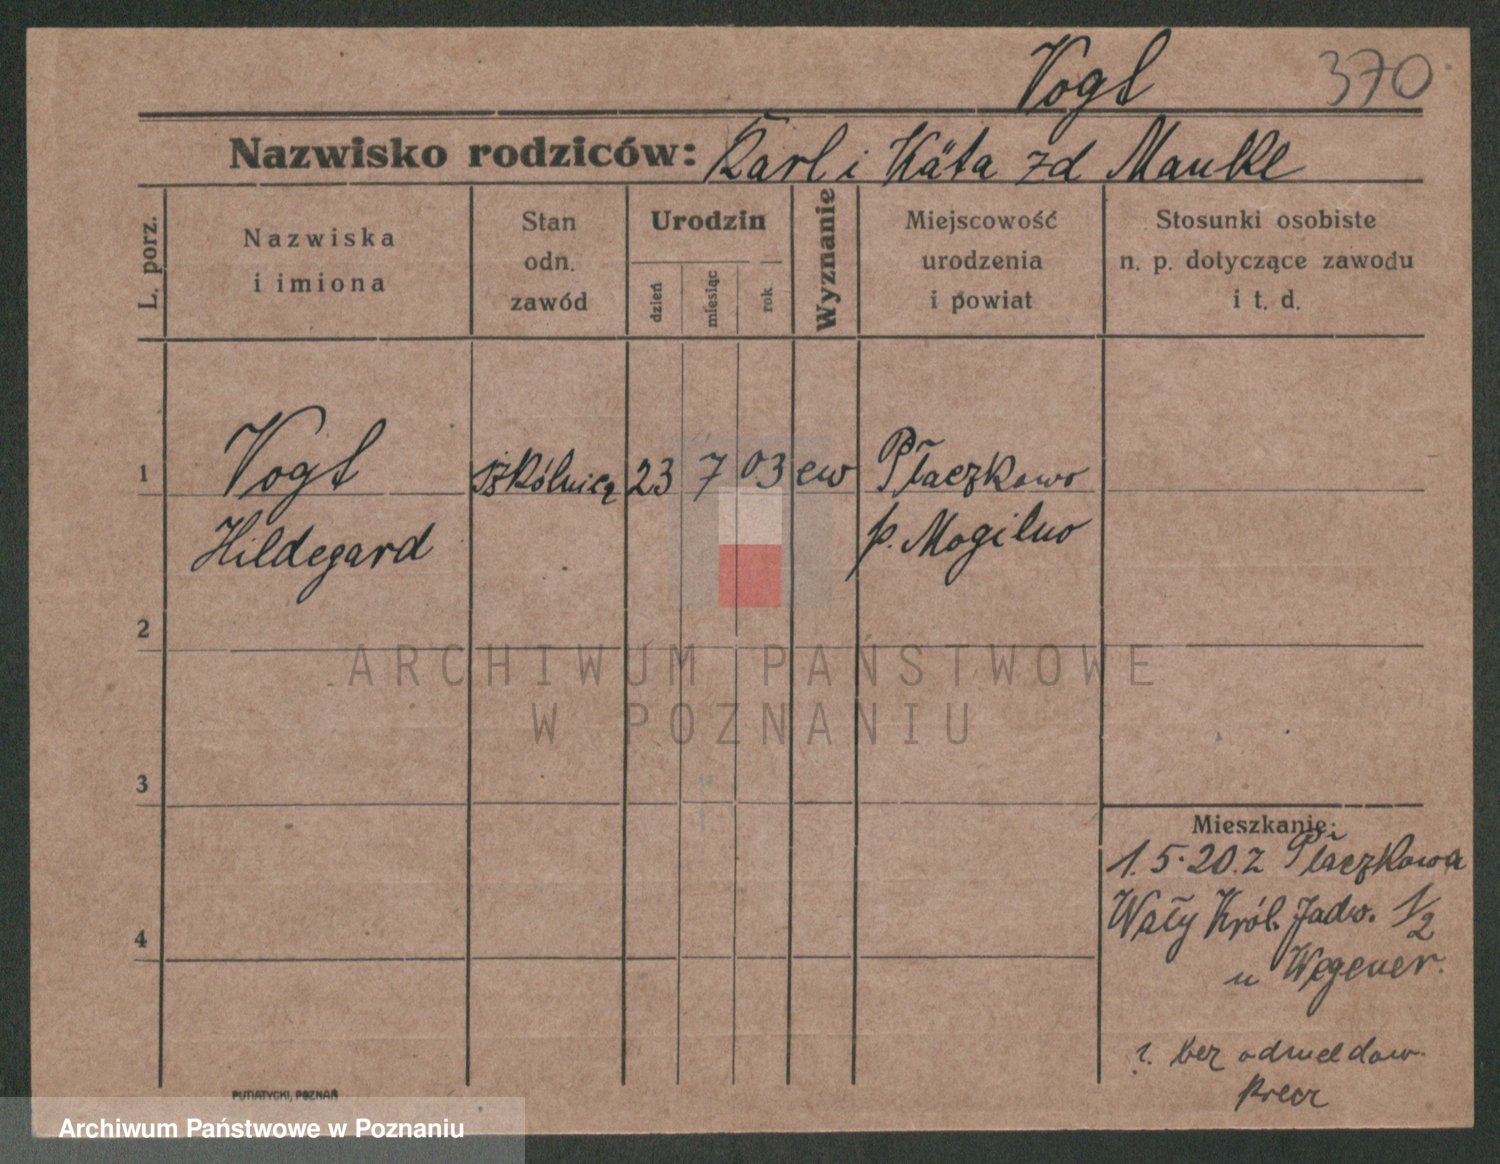 Vogl 370
Nazwisko rodziców: Karl i Käta zd Manke
L. porz.
Nazwiska
i imiona
Stan
odn.
zawód
Urodzin
dzień
miesiąc
rok
Wyznanie
Miejscowość
urodzenia
i powiat
Stosunki osobiste
n. p. dotyczące zawodu
i t. d.
1 Vogl 23 7 03 ew Płaczkowo
Hildegard p. Mogilno
2
ARCHIWUM PAŃSTWOWE
W POZNANIU
3
Mieszkanie:
1.5.20. z Płaczkowa
Wały Król. Jadw. 1/2
u Wegener.
4
bez odmeldow.
precz
PUTIATYCKI, POZNAŃ
Archiwum Państwowe w Poznaniu